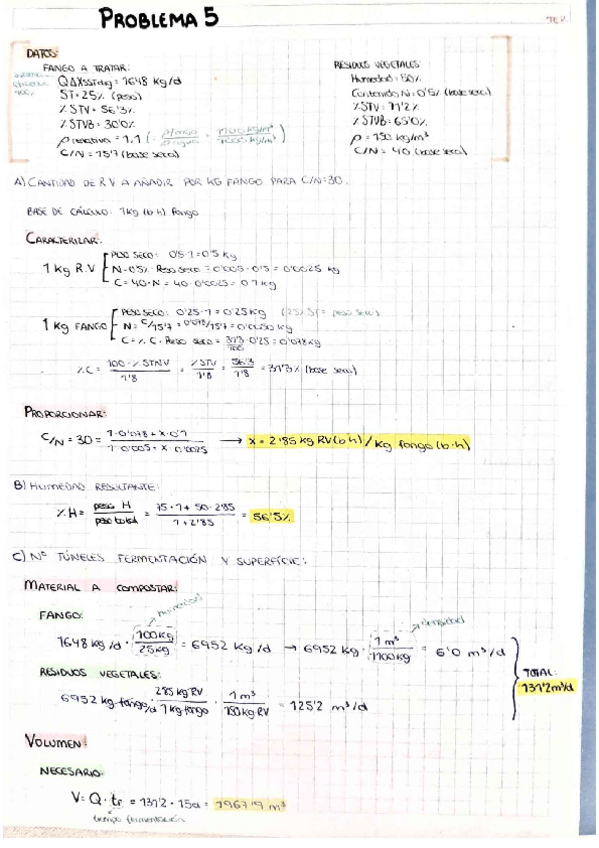 PROBLEMA 5
DATOS:
FANGO A TRATAR:
QΔXSSTdig = 1648 kg/d
ST = 25% (peso)
%STV = 56'3%
%STVB = 30'0%
ρ relativa = 1.1 (= ρfango / ρagua = 1100 kg/m³ / 1000 kg/m³)
C/N = 15'7 (base seca)
RESIDUOS VEGETALES:
Humedad = 50%
Contenido N = 0'5% (base seca)
%STV = 71'2%
%STVB = 65'0%
ρ = 150 kg/m³
C/N = 40 (base seca)
A) CANTIDAD DE RV A AÑADIR POR KG FANGO PARA C/N=30.
BASE DE CÁLCULO: 1kg (b·h) fango
CARACTERIZAR:
1 kg R.V
PESO SECO: 0'5·1 = 0'5 kg
N = 0.5% · Peso seco = 0'005 · 0'5 = 0'0025 kg
C = 40·N = 40·0'0025 = 0'1 kg
1 kg FANGO
PESO SECO: 0'25·1 = 0'25 kg (25% ST = peso seco)
N = C/15'7 = 0'078/15'7 = 0'0050 kg
C = %C · Peso seco = 31'3/100 · 0'25 = 0'078 kg
%C = 100-%STNV / 1'8 = %STV / 1'8 = 56'3 / 1'8 = 31'3% (base seca)
PROPORCIONAR:
C/N = 30 = 1·0'078 + x·0'1 / 1·0'005 + x·0'0025 → x = 2'85 kg RV (b·h) / kg fango (b·h)
B) HUMEDAD RESULTANTE:
%H = peso H / peso total = 75·1 + 50·2'85 / 1 + 2'85 = 56'5%
C) Nº TÚNELES FERMENTACIÓN Y SUPERFICIE:
MATERIAL A COMPOSTAR:
FANGO:
humedad
densidad
1648 kg/d · 100kg / 25kg = 6952 kg/d → 6952 kg · 1 m³ / 1100kg = 6'0 m³/d
RESIDUOS VEGETALES:
6952 kg fango/d · 2'85 kg RV / 1 kg fango · 1 m³ / 150 kg RV = 125'2 m³/d
TOTAL:
131'2 m³/d
VOLUMEN:
NECESARIO:
V = Q · tr = 131'2 · 15d = 1967'9 m³
tiempo fermentación